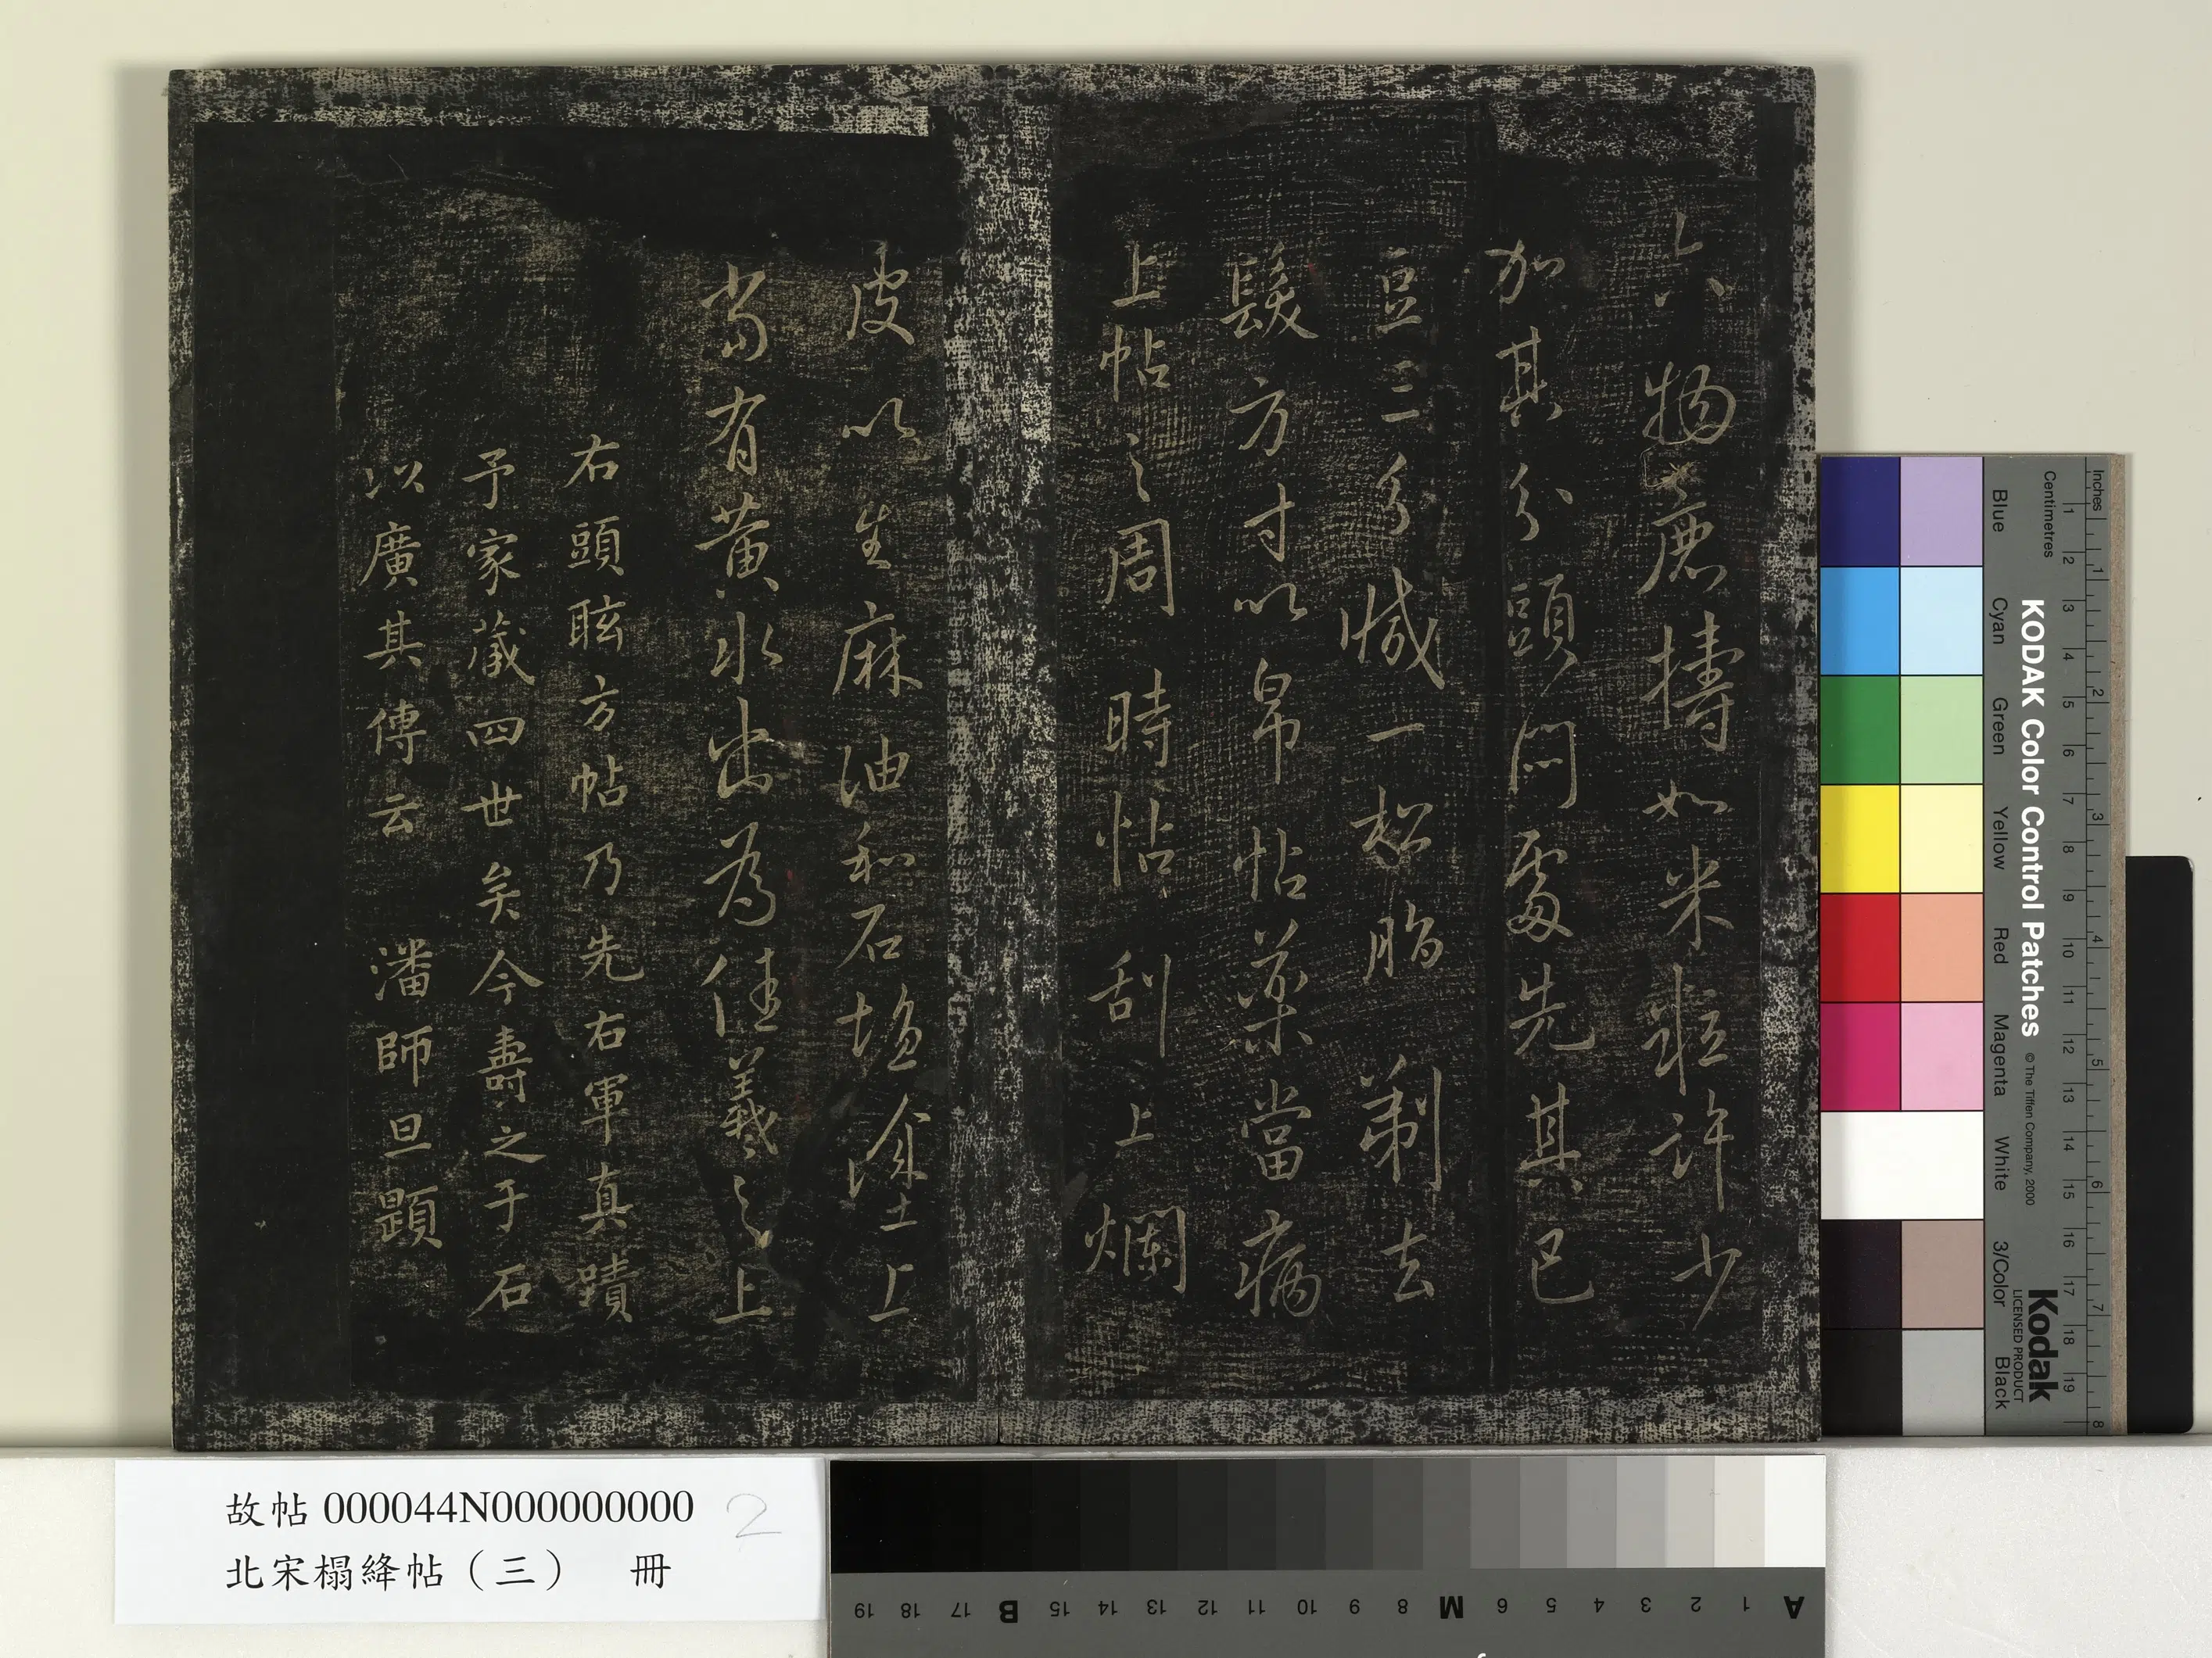 六物麁擣如米粒許少
加其分頭悶處先其已
豆三分減一松脂剃去
髮方寸以帛帖藥當病
上帖之周時帖刮上爛
皮以生麻油和石塩塗上
當有黃水出為佳羲之上
右頭眩方帖乃先右軍真蹟
予家藏四世矣今壽之于石
以廣其傳云 潘師旦題
故帖 000044N000000000 2
北宋榻絳帖（三） 冊
KODAK Color Control Patches
© The Tiffen Company, 2000
Kodak
LICENSED PRODUCT
Inches 1 2 3 4 5 6 7 8
Centimetres 1 2 3 4 5 6 7 8 9 10 11 12 13 14 15 16 17 18 19
Blue Cyan Green Yellow Red Magenta White 3/Color Black
A 1 2 3 4 5 6 M 8 9 10 11 12 13 14 15 B 17 18 19